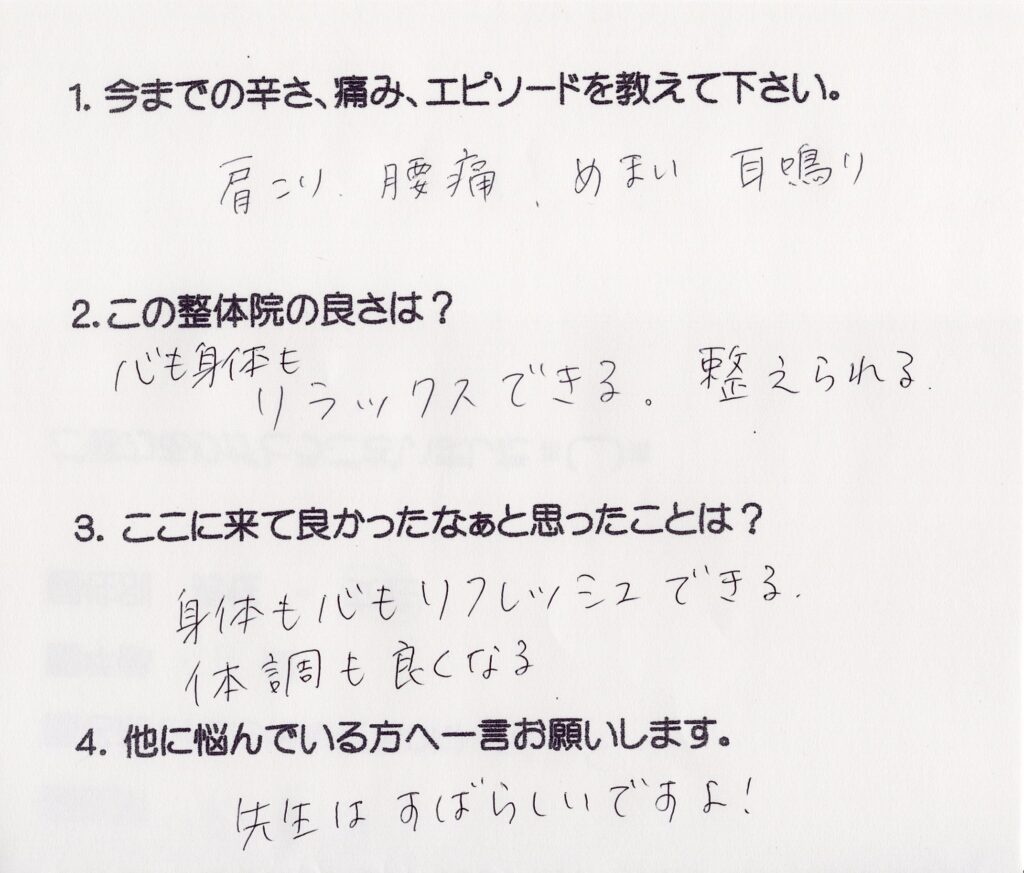 1. 今までの辛さ、痛み、エピソードを教えて下さい。
肩こり. 腰痛、めまい 耳鳴り
2. この整体院の良さは？
心も身体も
リラックスできる。 整えられる.
3. ここに来て良かったなぁと思ったことは？
身体も心もリフレッシュできる.
体調も良くなる
4. 他に悩んでいる方へ一言お願いします。
先生はすばらしいですよ！